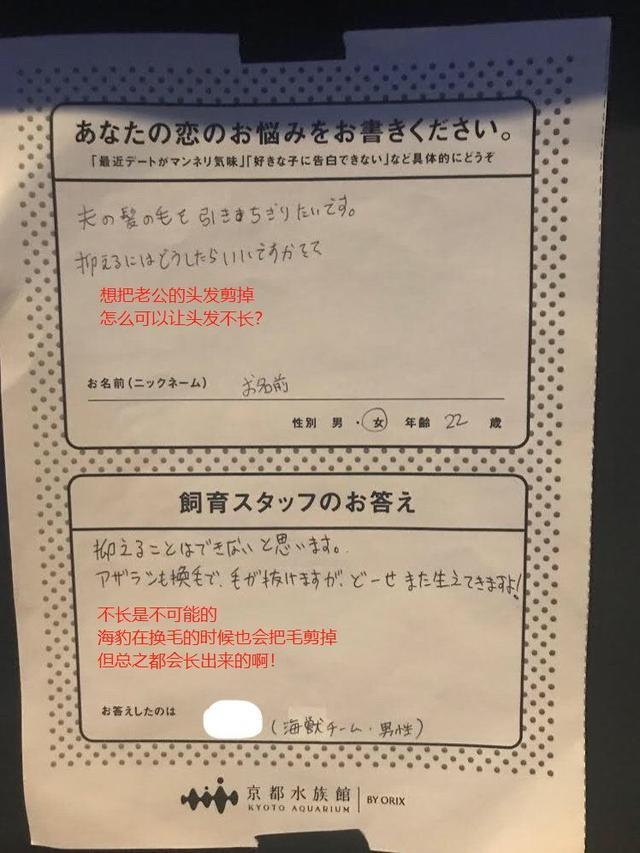 あなたの恋のお悩みをお書きください。
「最近デートがマンネリ気味」「好きな子に告白できない」など具体的にどうぞ
夫の髪の毛を引きちぎりたいです。
抑えるにはどうしたらいいですか
想把老公的头发剪掉
怎么可以让头发不长？
お名前（ニックネーム） お名前
性別 男・女 年齢 22 歳
飼育スタッフのお答え
抑えることはできないと思います。
アザラシも換毛で、毛が抜けますが、どーせまた生えてきますよ！
不长是不可能的
海豹在换毛的时候也会把毛剪掉
但总之都会长出来的啊！
お答えしたのは
（海獣チーム・男性）
京都水族館 BY ORIX
KYOTO AQUARIUM